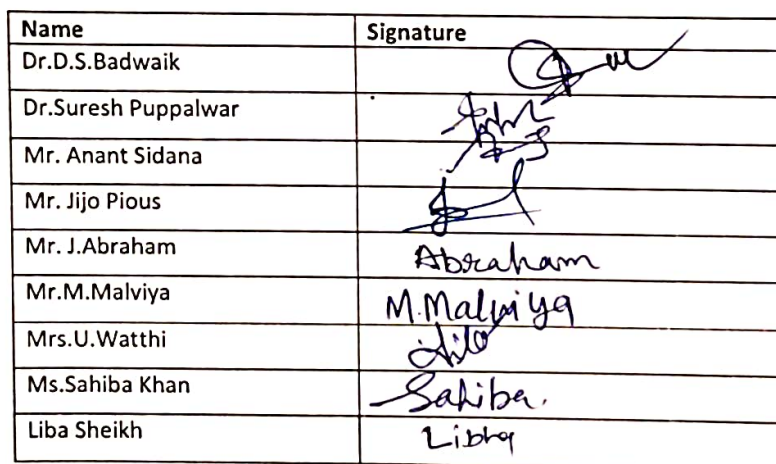 Name Signature
Dr.D.S.Badwaik
Dr.Suresh Puppalwar
Mr. Anant Sidana
Mr. Jijo Pious
Mr. J.Abraham Abraham
Mr.M.Malviya M.Malviya
Mrs.U.Watthi
Ms.Sahiba Khan Sahiba.
Liba Sheikh Libha